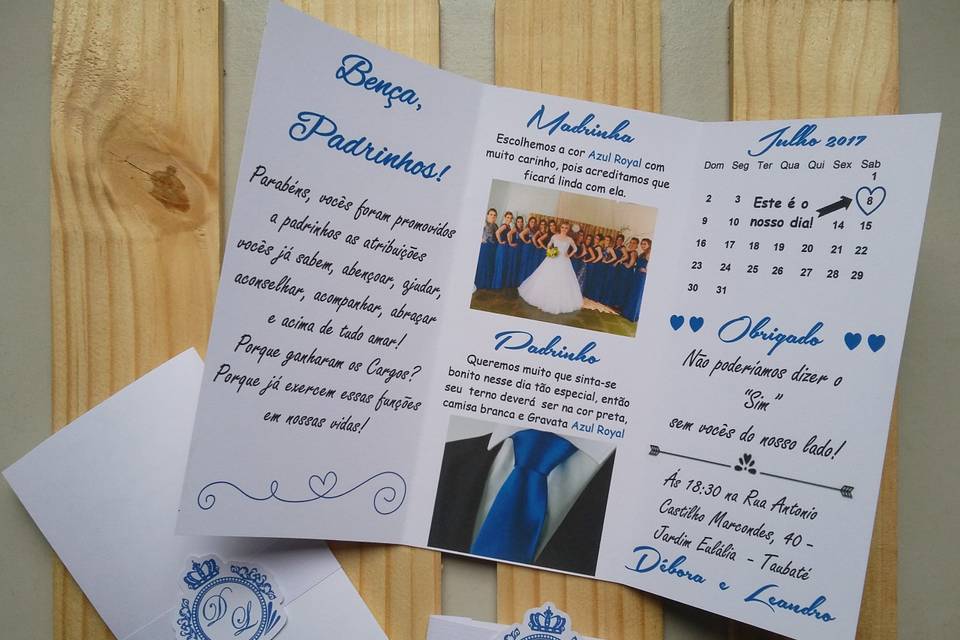 Bença,
Padrinhos!
Parabéns, vocês foram promovidos
a padrinhos as atribuições
vocês já sabem, abençoar, ajudar,
aconselhar, acompanhar, abraçar
e acima de tudo amar!
Porque ganharam os Cargos?
Porque já exercem essas funções
em nossas vidas!
Madrinha
Escolhemos a cor Azul Royal com
muito carinho, pois acreditamos que
ficará linda com ela.
Padrinho
Queremos muito que sinta-se
bonito nesse dia tão especial, então
seu terno deverá ser na cor preta,
camisa branca e Gravata Azul Royal
Julho 2017
Dom Seg Ter Qua Qui Sex Sab
1
2 3 Este é o 8
nosso dia!
9 10 14 15
16 17 18 19 20 21 22
23 24 25 26 27 28 29
30 31
Obrigado
Não poderíamos dizer o
"Sim"
sem vocês do nosso lado!
Ás 18:30 na Rua Antonio
Castilho Marcondes, 40 -
Jardim Eulália - Taubaté
Débora e Leandro
D L